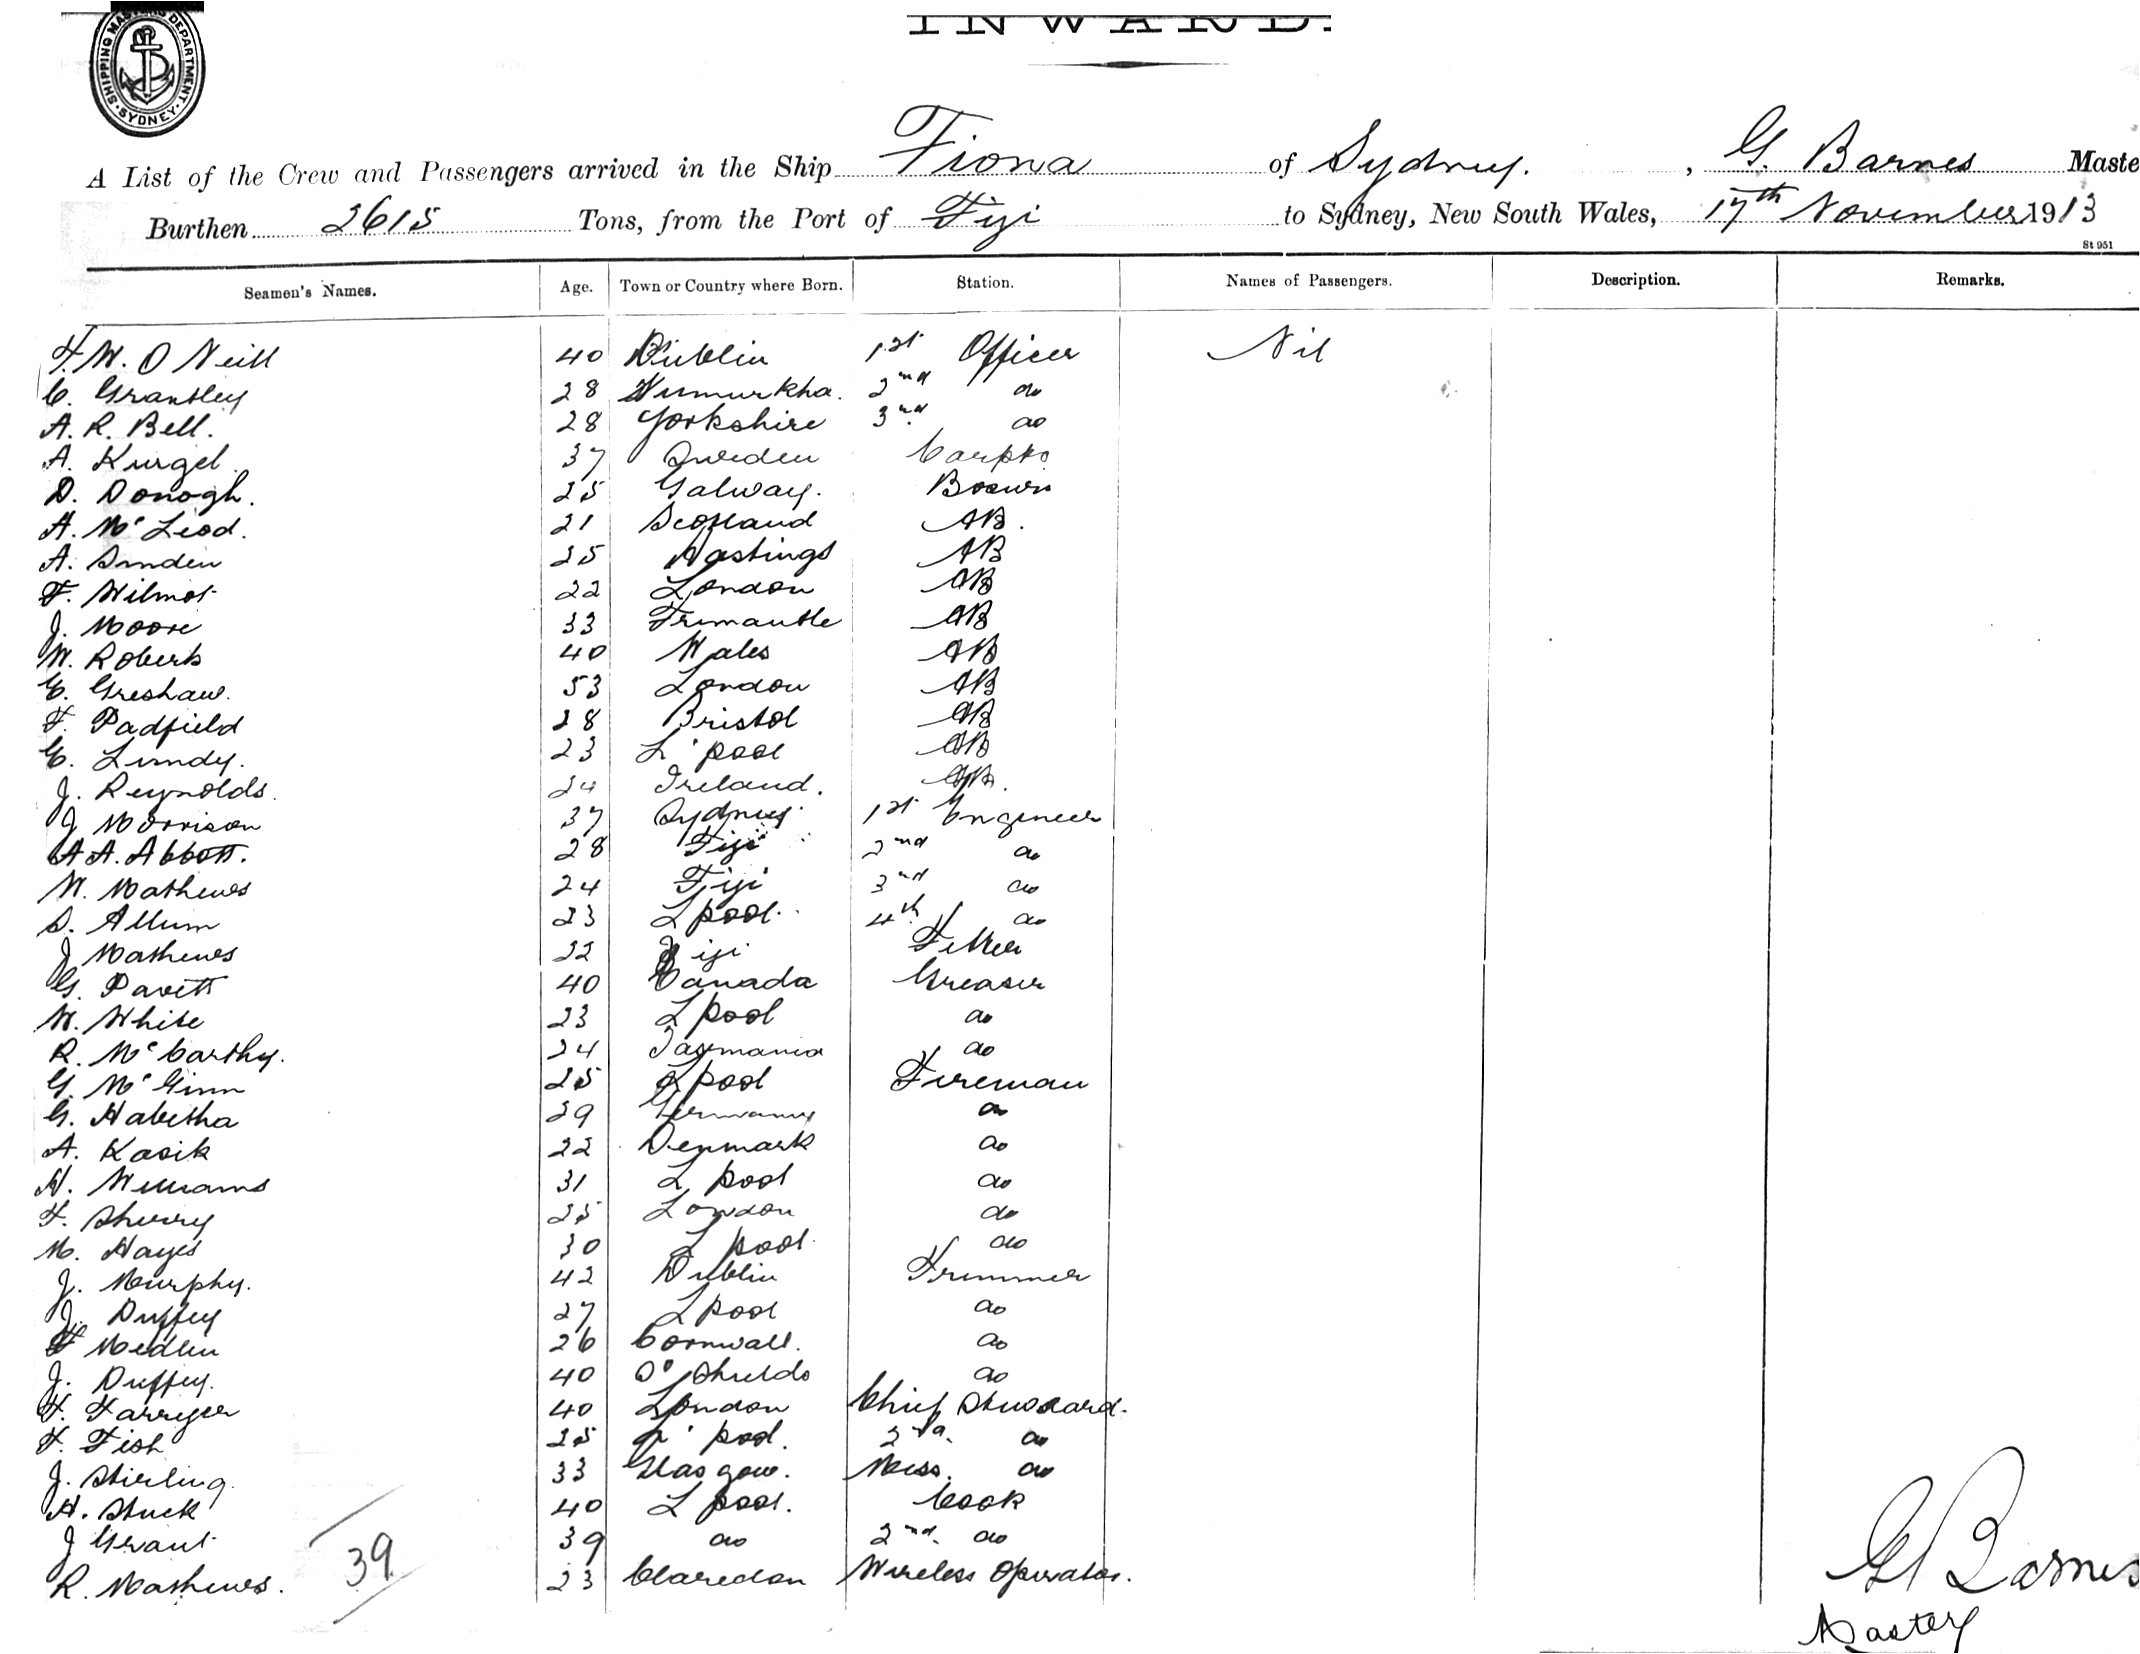 SHIPPING MASTERS DEPARTMENT. SYDNEY.
INWARD.
A List of the Crew and Passengers arrived in the Ship Fiona of Sydney. , G. Barnes Maste
Burthen 2615 Tons, from the Port of Fiji to Sydney, New South Wales, 17th November 1913
St 951
Seamen's Names. Age. Town or Country where Born. Station. Names of Passengers. Description. Remarks.
F. W. O Neill 40 Dublin 1st Officer Nil
C. Grantley 28 Wumurkha. 2nd do
A. R. Bell. 28 Yorkshire 3rd do
A. Kurgel. 37 Sweden Carptr
D. Donogh. 25 Galway. Bosun
A. McLeod. 21 Scotland AB.
A. Sinden 25 Hastings AB
F. Wilmot 22 London AB
J. Moore 33 Frimantle AB
W. Roberts 40 Wales AB
E. Greshaw. 53 London AB
F. Padfield 28 Bristol AB
E. Lundy. 23 L'pool AB
J. Reynolds. 24 Ireland. AB.
J Morrison 37 Sydney. 1st Engineer
A A. Abbott. 28 Fiji 2nd do
W. Mathews 24 Fiji 3rd do
S. Allum 23 Lpool. 4th do
J Mathews 22 Fiji Fitter
G. Pavett 40 Canada Greaser
W. White 23 Lpool do
R. McCarthy. 24 Tasmania do
G. McGinn 25 Lpool Fireman
G. Habetha 29 Germany do
A. Kasik 22 Denmark do
H. Williams 31 Lpool do
F. Sherry 25 London do
M. Hayes 30 Lpool. do
J. Murphy. 42 Dublin Trimmer
J. Duffey 27 Lpool do
F Medlin 26 Cornwall. do
J. Duffey. 40 So Shields do
F. Farryer 40 London Chief Steward.
F. Fish 25 L'pool. 2nd. do
J. Stirling. 33 Glasgow. Mess. do
H. Stuck 40 Lpool. Cook
J Grant 39 do 2nd. do
R. Mathews. 23 Claredon Wireless Operator.
39
G Barnes
Master